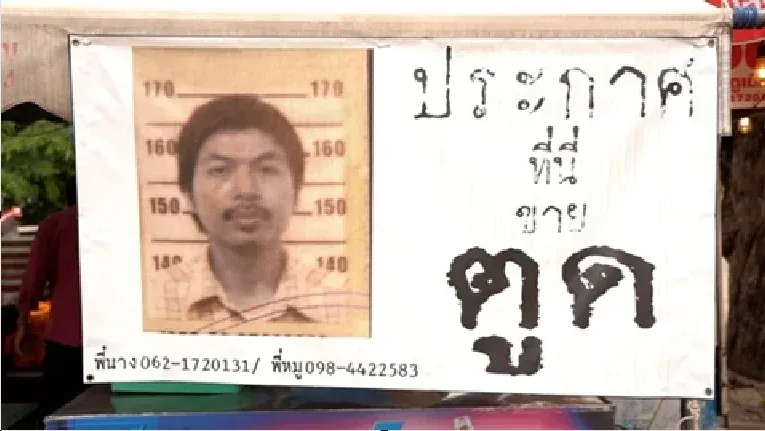 170 170
160 160
150 150
140 140
ประกาศ
ที่นี่
ขาย
ตูด
พี่นาง062-1720131/ พี่หมู098-4422583